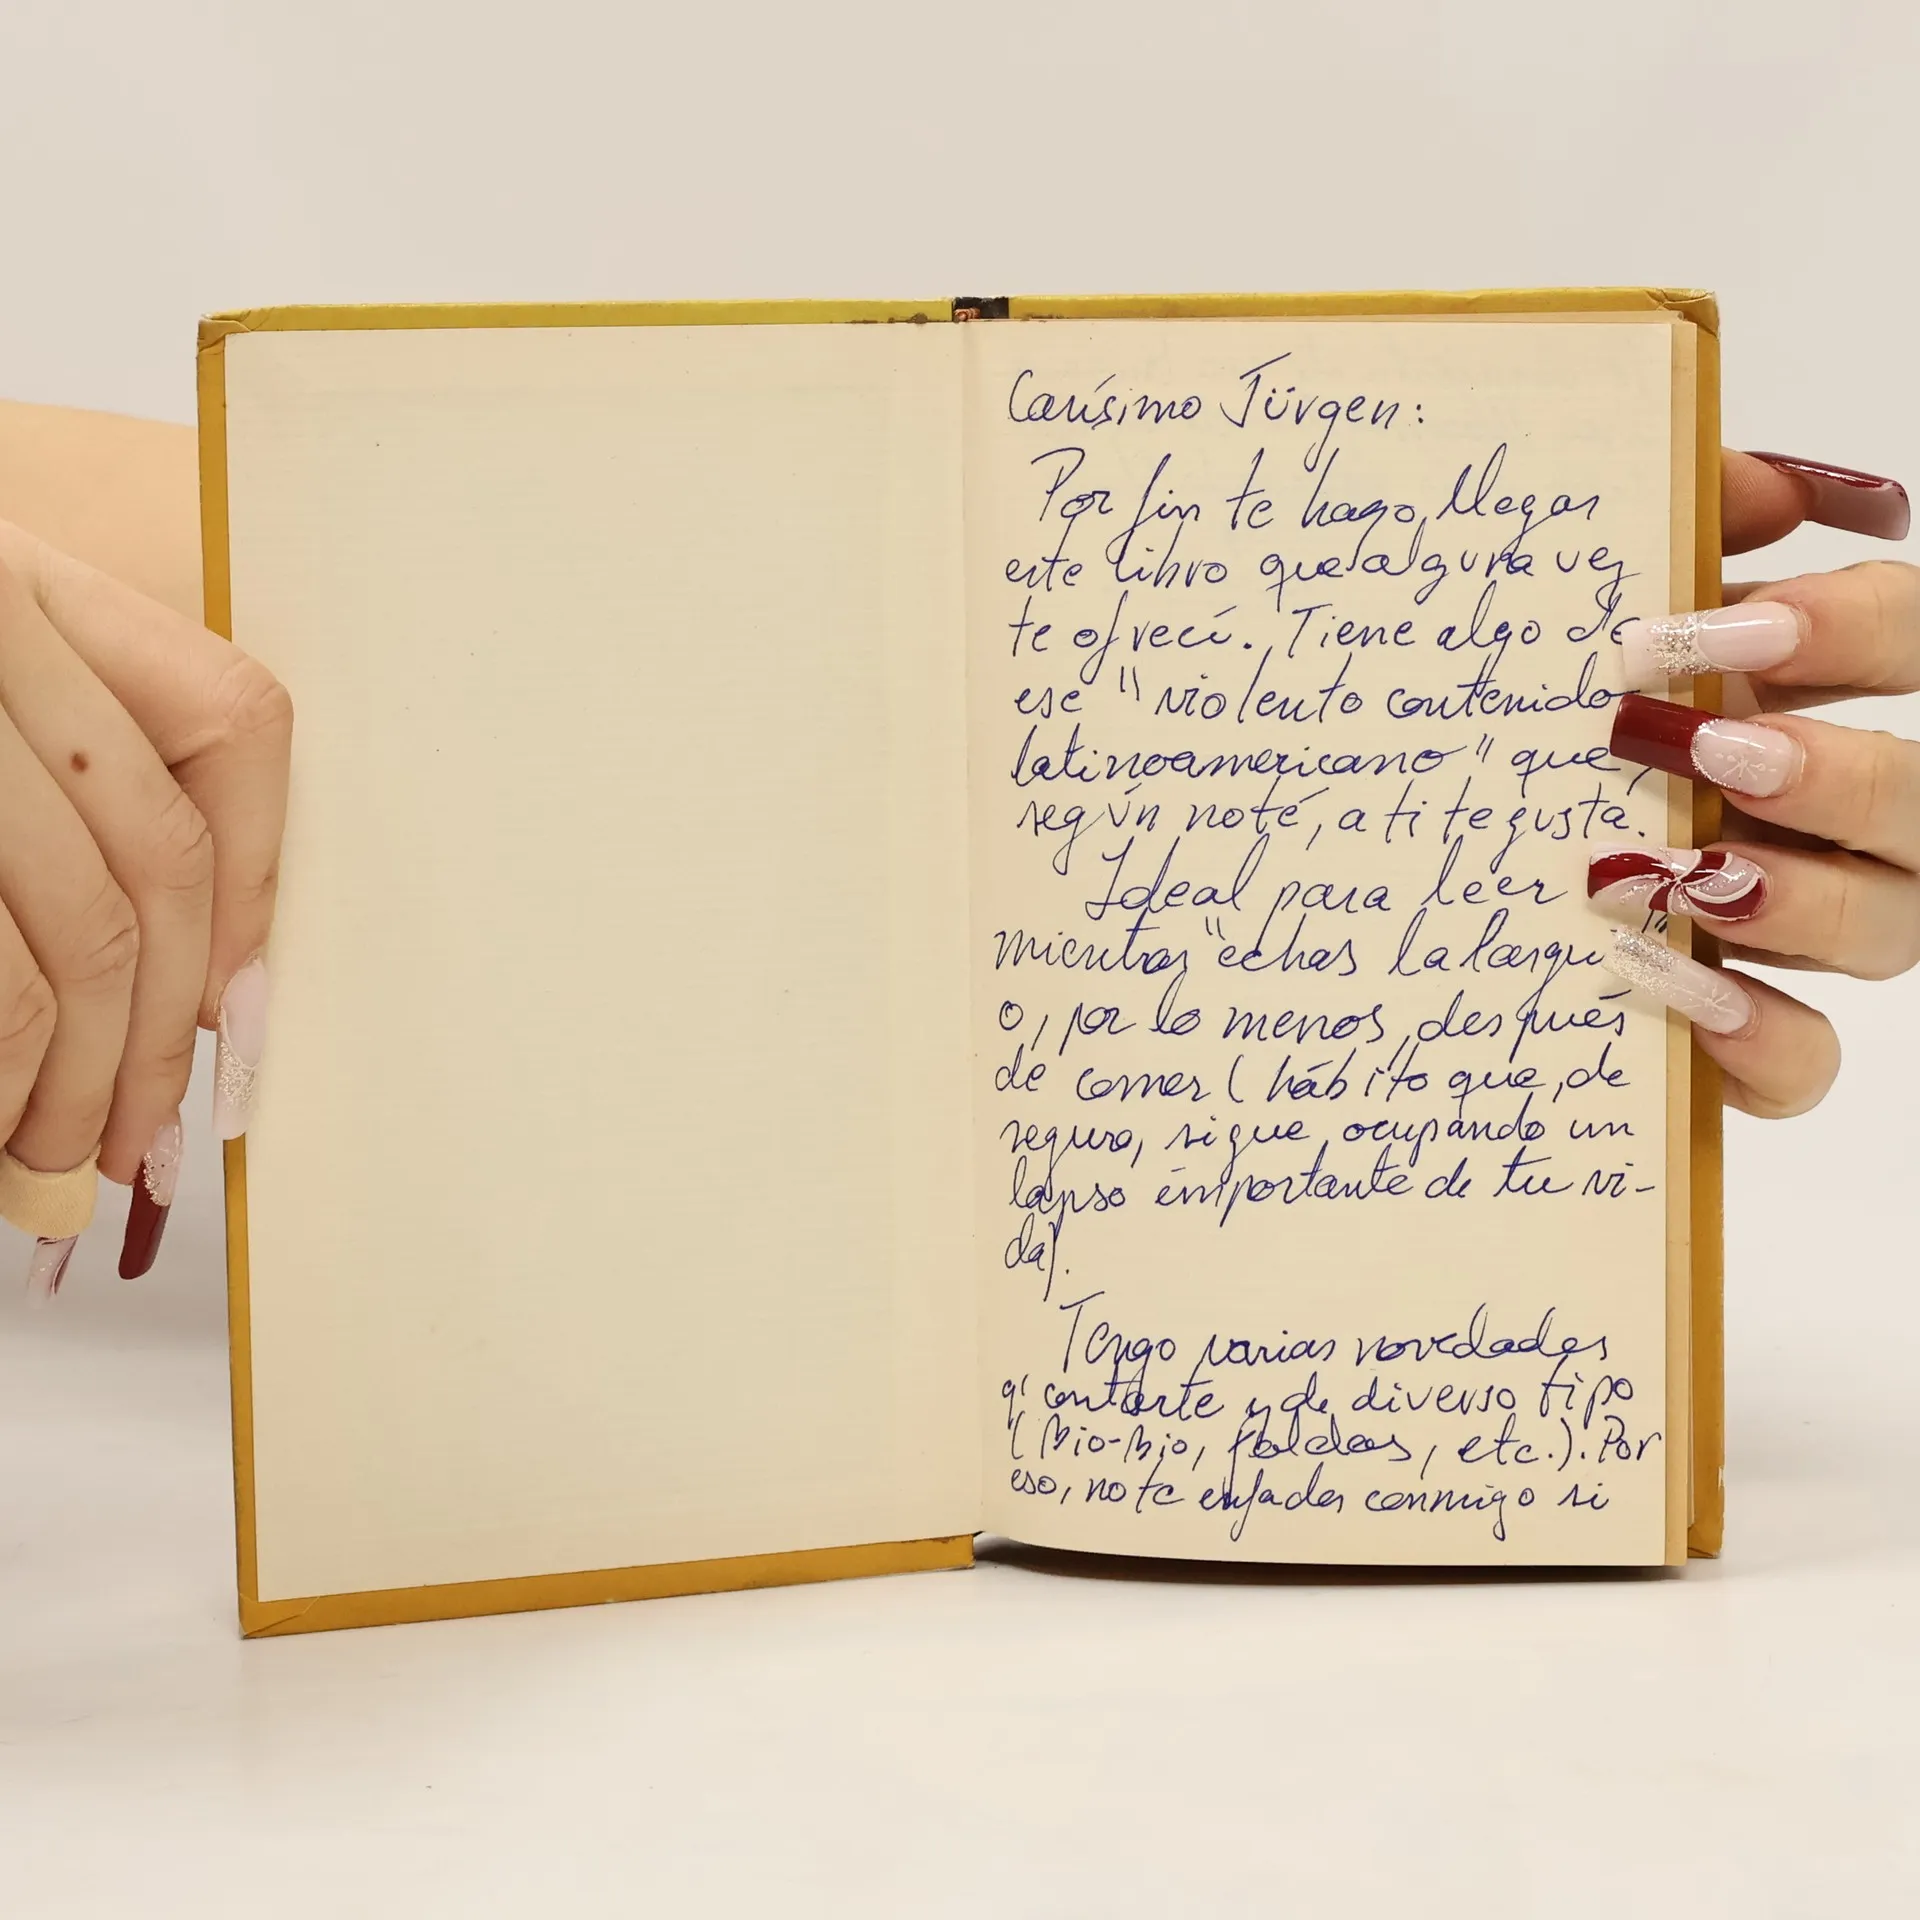 Carísimo Jürgen:
Por fin te hago llegar
este libro que alguna vez
te ofrecí. Tiene algo de
ese "violento contenido
latinoamericano" que,
según noté, a ti te gusta.
Ideal para leer
mientras "echas la
o, por lo menos, después
de comer (hábito que, de
seguro, sigue ocupando un
lapso importante de tu vi-
da).
Tengo varias novedades
q' contarte y de diverso tipo
(Bio-Bio, faldas, etc.). Por
eso, no te enfades conmigo si